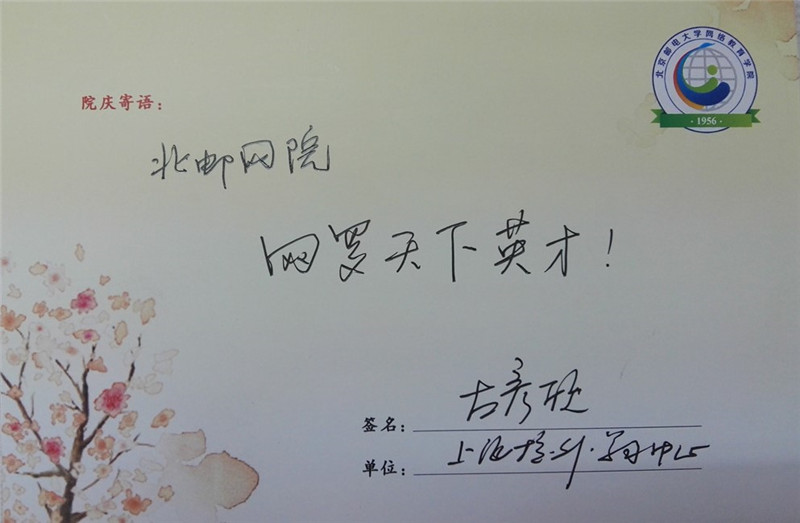 北京邮电大学网络教育学院
· 1956 ·
院庆寄语：
北邮网院
网罗天下英才！
签名：古彦
单位：上海 中心